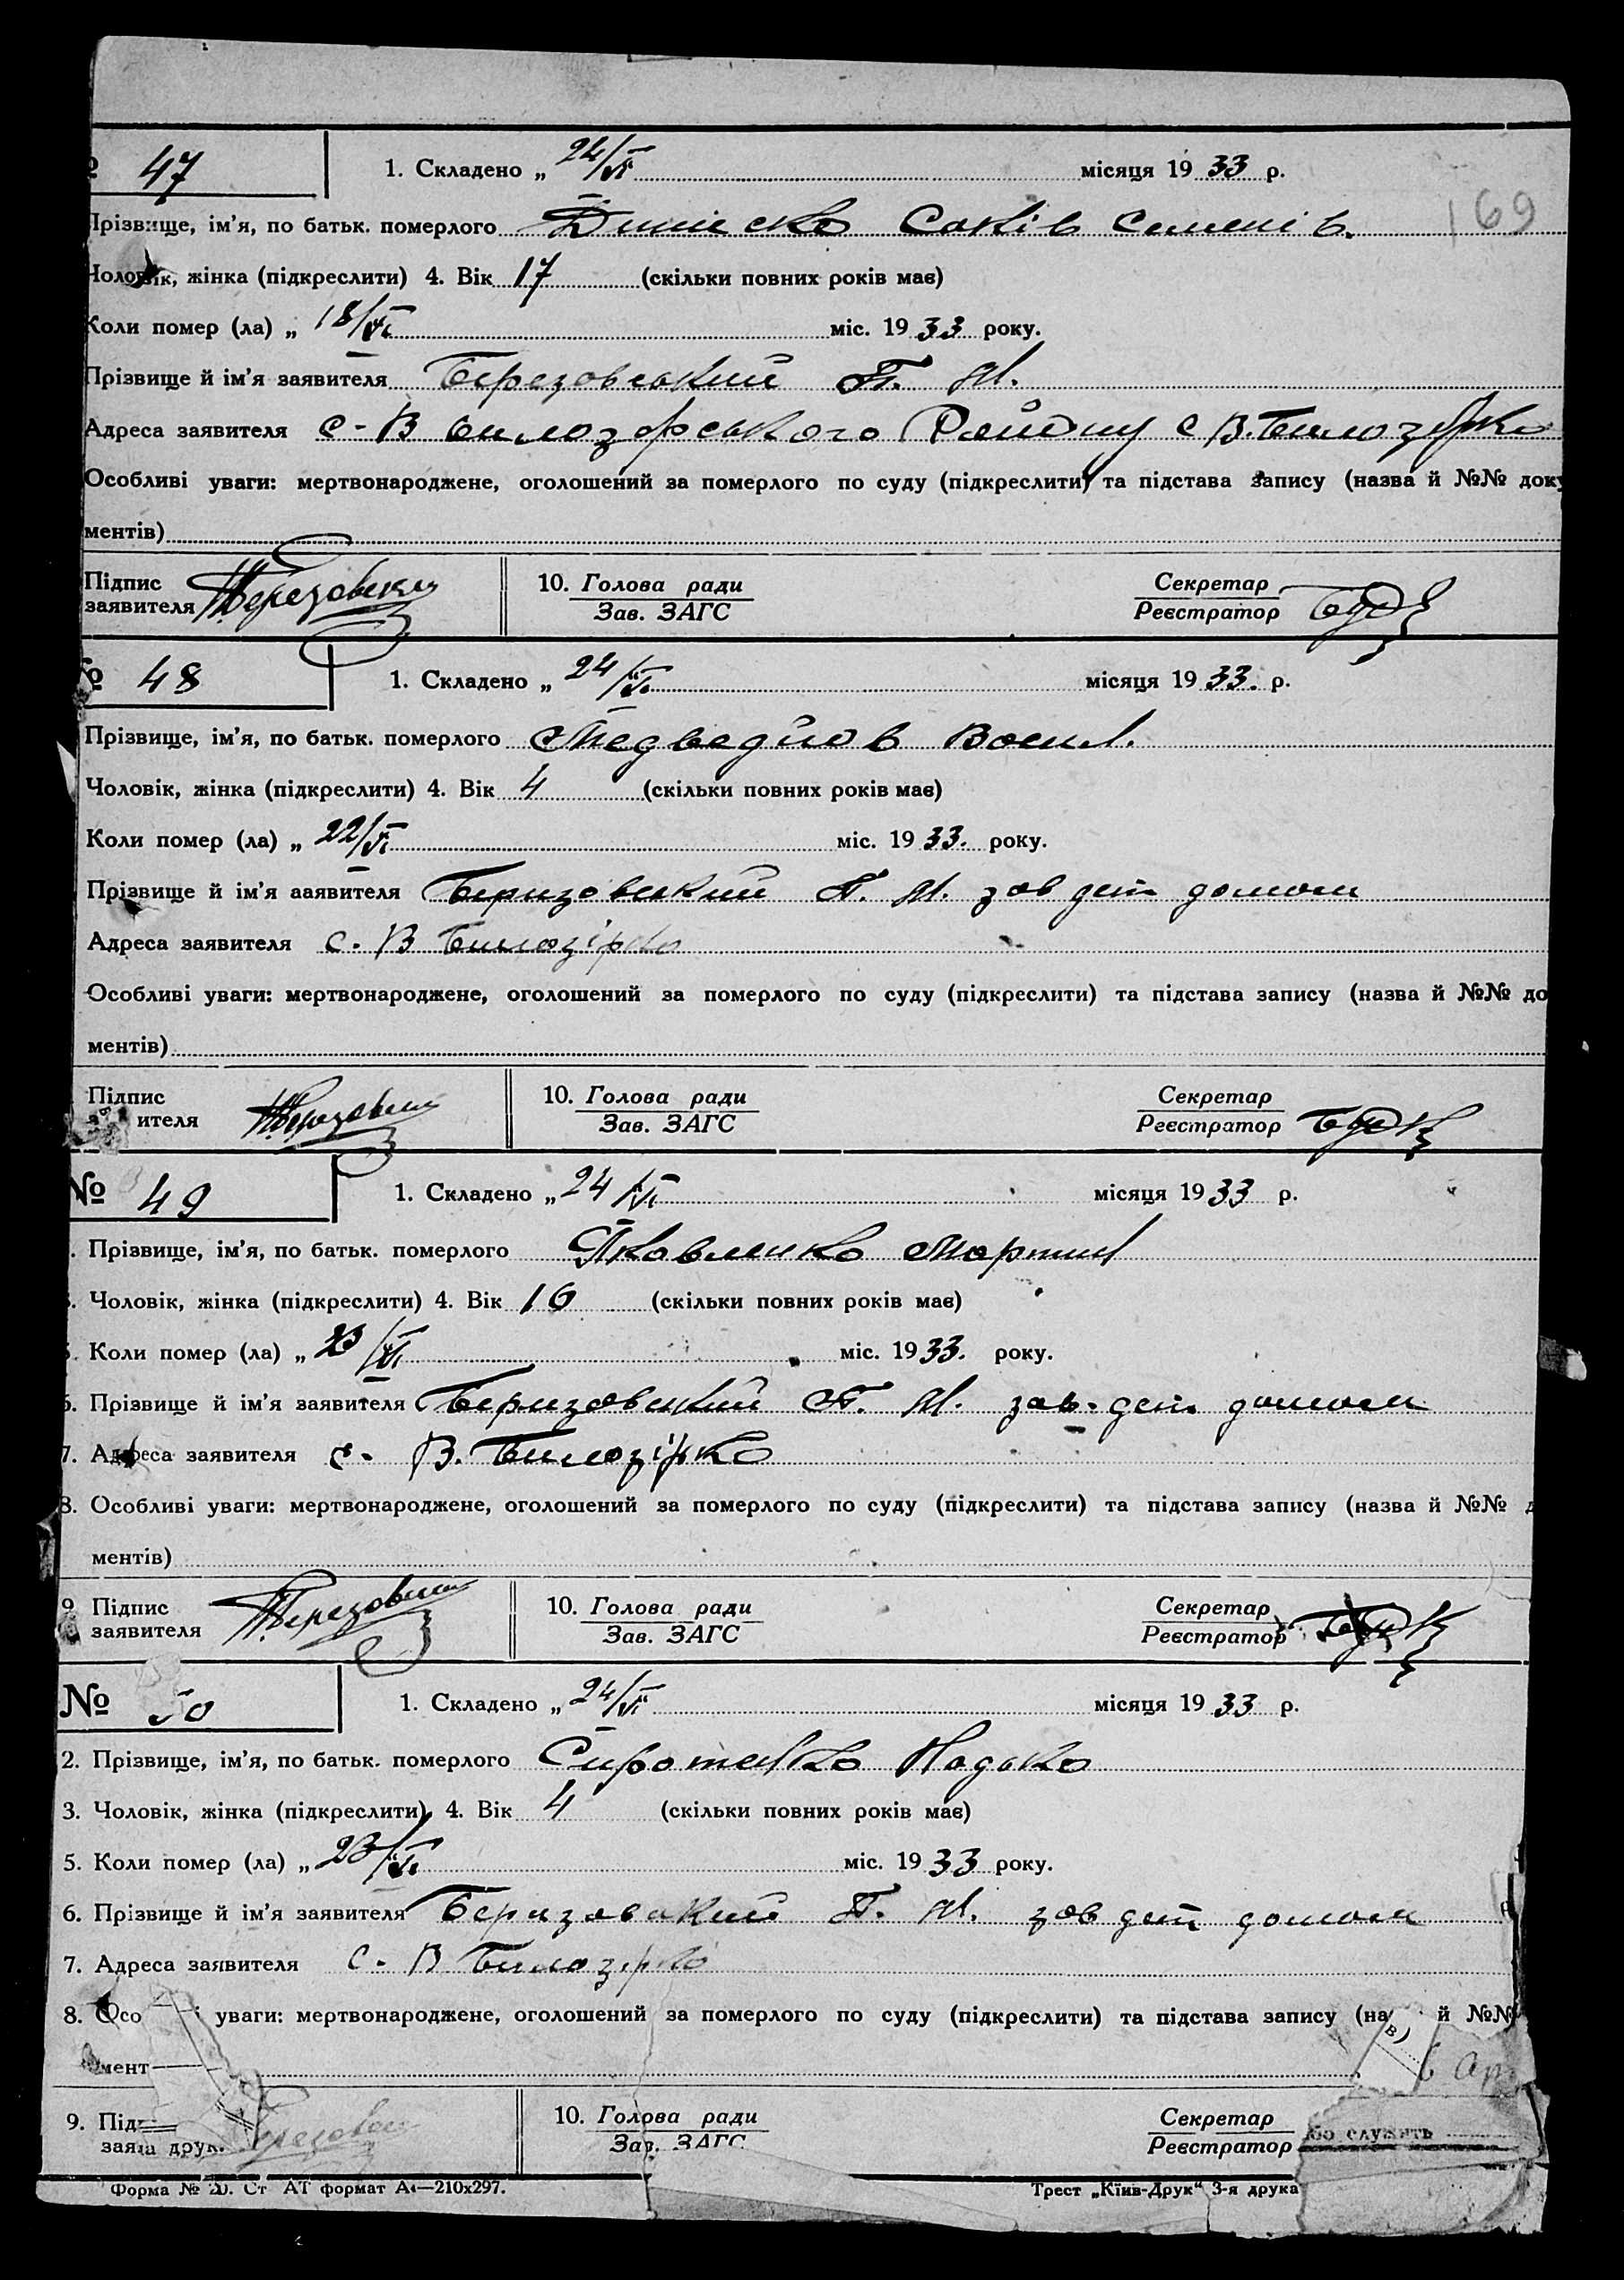 № 47 1. Складено „ 24/VI місяця 19 33 р.
169
Прізвище, ім'я, по батьк. померлого Семенів.
Чоловік, жінка (підкреслити) 4. Вік 17 (скільки повних років має)
Коли помер (ла) „ 18/VI міс. 19 33 року.
Прізвище й ім'я заявителя Березовський П. И.
Адреса заявителя с-В Билозірського Району с В. Билозірка
Особливі уваги: мертвонароджене, оголошений за померлого по суду (підкреслити) та підстава запису (назва й №№ доку
ментів)
Підпис заявителя Березовский 10. Голова ради Зав. ЗАГС Секретар Реєстратор
№ 48 1. Складено „ 24/VI місяця 19 33. р.
Прізвище, ім'я, по батьк. померлого Медведйов Васил.
Чоловік, жінка (підкреслити) 4. Вік 4 (скільки повних років має)
Коли помер (ла) „ 22/VI міс. 19 33. року.
Прізвище й ім'я ааявителя Беризовський П. И. зав дет домом
Адреса заявителя с. В Билозірка
Особливі уваги: мертвонароджене, оголошений за померлого по суду (підкреслити) та підстава запису (назва й №№ до
ментів)
Підпис ителя Березовский 10. Голова ради Зав. ЗАГС Секретар Реєстратор
№ 49 1. Складено „ 24/VI місяця 19 33 р.
. Прізвище, ім'я, по батьк. померлого Яковленко Мартин
. Чоловік, жінка (підкреслити) 4. Вік 16 (скільки повних років має)
. Коли помер (ла) „ 23/VI міс. 19 33. року.
6. Прізвище й ім'я заявителя Беризовский П. И. зав. дет. домом
7. Адреса заявителя с. В. Билозірка
8. Особливі уваги: мертвонароджене, оголошений за померлого по суду (підкреслити) та підстава запису (назва й №№ д
ментів)
9 Підпис заявителя Березовский 10. Голова ради Зав. ЗАГС Секретар Реєстратор
№ 50 1. Складено „ 24/VI місяця 19 33 р.
2. Прізвище, ім'я, по батьк. померлого Сиротенко Надька
3. Чоловік, жінка (підкреслити) 4. Вік 4 (скільки повних років має)
5. Коли помер (ла) „ 23/VI міс. 19 33 року.
6. Прізвище й ім'я заявителя Беризовский П. И. зав дет домом
7. Адреса заявителя с. В Билозірка
8. Осо і уваги: мертвонароджене, оголошений за померлого по суду (підкреслити) та підстава запису (на й №№
мент
9. Під заяв друк. 10. Голова ради Зав. ЗАГС Секретар Реєстратор служить
Форма № 20. Ст АТ формат А4—210х297. Трест „Київ-Друк“ 3-я друка